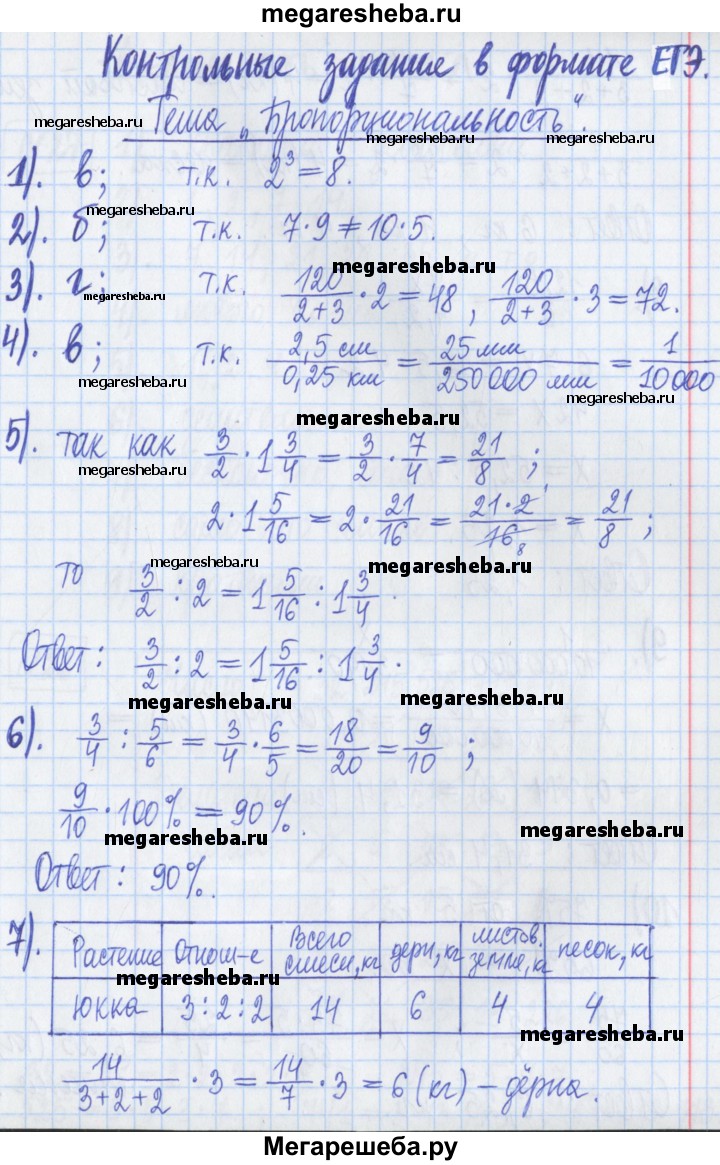 megaresheba.ru
Контрольные задание в формате ЕГЭ.
megaresheba.ru
Тема „Пропорциональность“.
megaresheba.ru
1). в; т.к. 2³ = 8.
2). б; т.к. 7·9 ≠ 10·5.
megaresheba.ru
megaresheba.ru
3). г; т.к. 120/(2+3) · 2 = 48, 120/(2+3) · 3 = 72.
megaresheba.ru
4). в; т.к. 2,5 см/0,25 км = 25 мм/250000 мм = 1/10000
megaresheba.ru
megaresheba.ru
megaresheba.ru
5). так как 3/2 · 1 3/4 = 3/2 · 7/4 = 21/8 ;
megaresheba.ru
2 · 1 5/16 = 2 · 21/16 = 21·2/16 8 = 21/8 ;
megaresheba.ru
megaresheba.ru
то 3/2 : 2 = 1 5/16 : 1 3/4.
Ответ: 3/2 : 2 = 1 5/16 : 1 3/4.
megaresheba.ru
megaresheba.ru
6). 3/4 : 5/6 = 3/4 · 6/5 = 18/20 = 9/10 ;
9/10 · 100% = 90%.
megaresheba.ru
megaresheba.ru
Ответ: 90%.
7). Растение Отнош-е Всего смеси, кг дерн, кг листов. земля, кг песок, кг
megaresheba.ru
Юкка 3:2:2 14 6 4 4
megaresheba.ru
14/(3+2+2) · 3 = 14/7 · 3 = 6 (кг) – дёрна.
Мегарешеба.ру